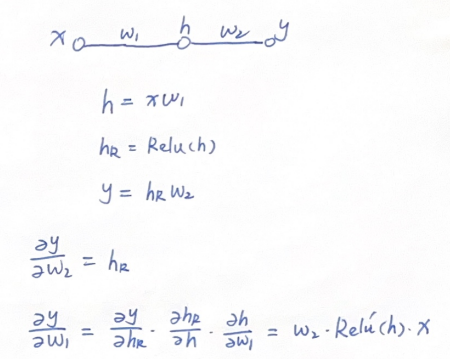 x w₁ h w₂ y
h = xw₁
hR = Relu(h)
y = hR w₂
∂y/∂w₂ = hR
∂y/∂w₁ = ∂y/∂hR · ∂hR/∂h · ∂h/∂w₁ = w₂ · Relu′(h) · x